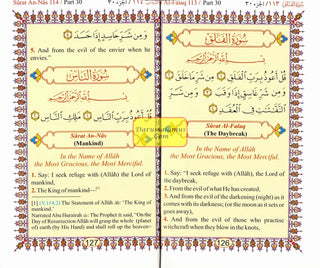 Sûrat Al-Falaq 113 / Part 30
سُورَةُ الْفَلَقِ
بِسْمِ اللَّهِ الرَّحْمَٰنِ الرَّحِيمِ
قُلْ أَعُوذُ بِرَبِّ الْفَلَقِ
مِن شَرِّ مَا خَلَقَ
وَمِن شَرِّ غَاسِقٍ إِذَا وَقَبَ
وَمِن شَرِّ
النَّفَّاثَاتِ فِي الْعُقَدِ
Sûrat Al-Falaq
(The Daybreak)
In the Name of Allâh
the Most Gracious, the Most Merciful.
1. Say: "I seek refuge with (Allâh), the Lord of
the daybreak,
2. From the evil of what He has created,
3. And from the evil of the darkening (night) as it
comes with its darkness; (or the moon as it sets or
goes away),
4. And from the evil of those who practise
witchcraft when they blow in the knots,
126
Sûrat An-Nâs 114 / Part 30
وَمِن شَرِّ حَاسِدٍ إِذَا حَسَدَ
5. And from the evil of the envier when he
envies."
سُورَةُ النَّاسِ
بِسْمِ اللَّهِ الرَّحْمَٰنِ الرَّحِيمِ
قُلْ أَعُوذُ بِرَبِّ النَّاسِ
مَلِكِ النَّاسِ
Sûrat An-Nâs
(Mankind)
In the Name of Allâh
the Most Gracious, the Most Merciful.
1. Say: "I seek refuge with (Allâh), the Lord of
mankind,
2. The King of mankind—[1]
[1] (V.114:2) The Statement of Allâh: 'The King of
mankind.'
Narrated Abu Hurairah: The Prophet said, "On the
Day of Resurrection Allâh will grasp the whole (planet
of) earth (by His Hand) and shall roll up the heaven-
127
Darussalamus
Com